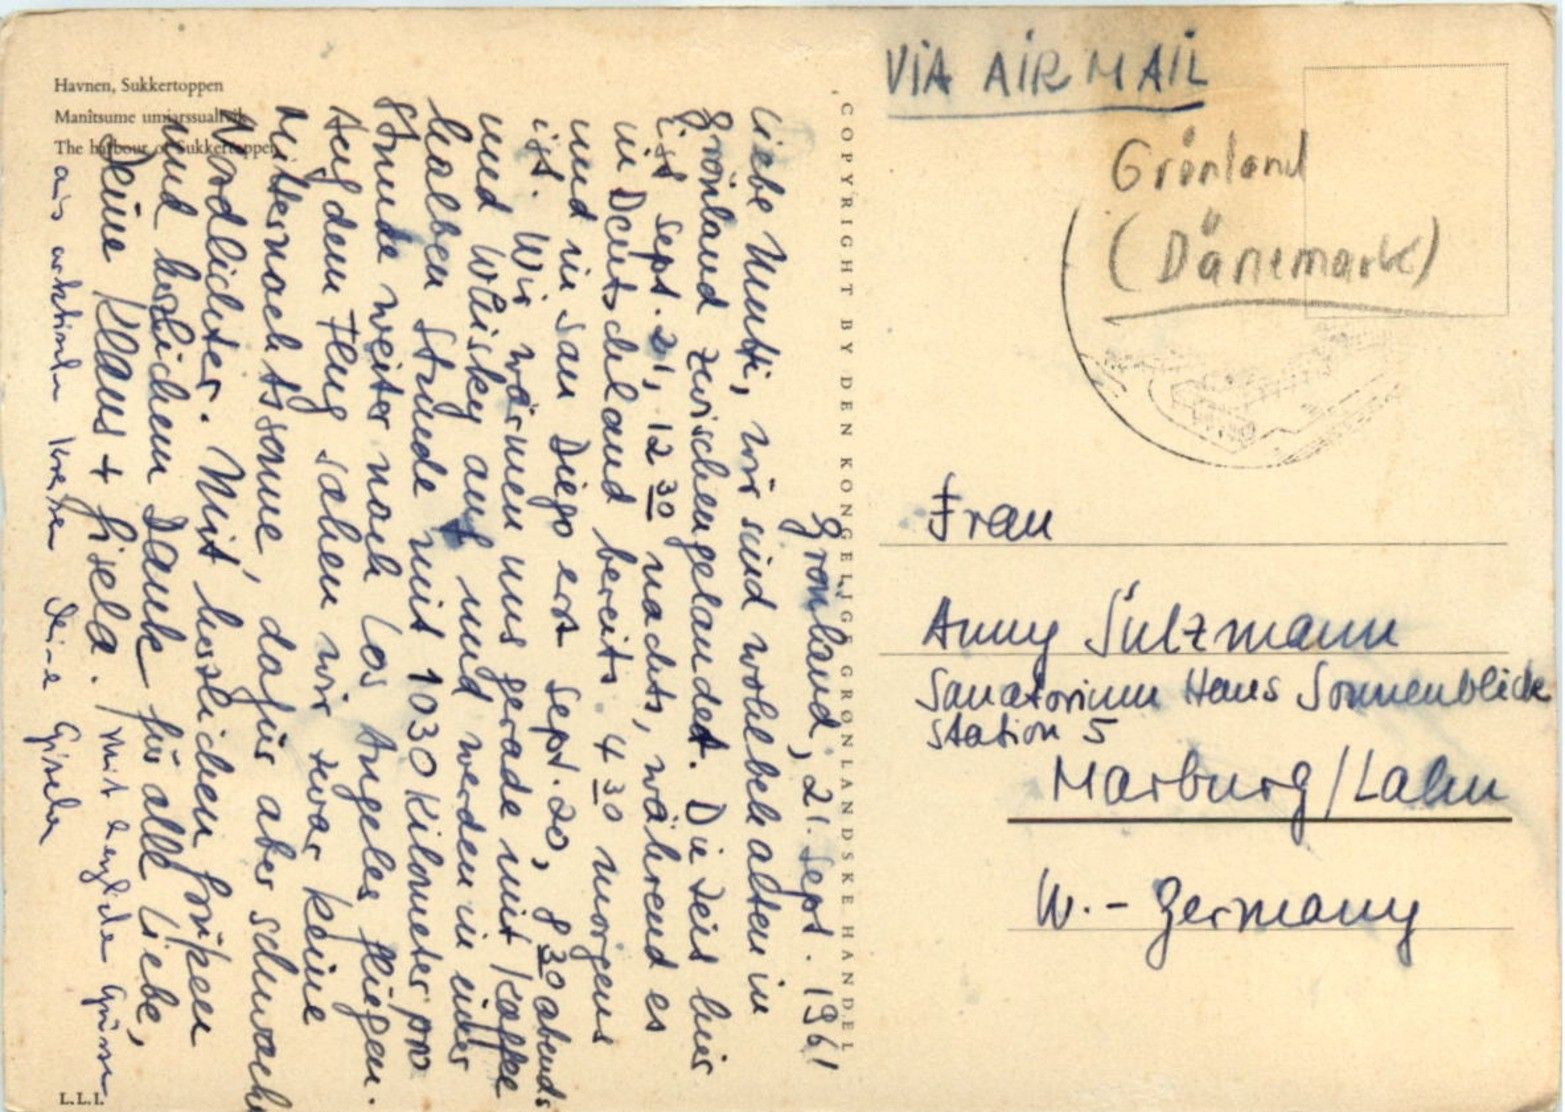 Havnen, Sukkertoppen
Manîtsume umiarssualivik
The harbour of Sukkertoppen
Grönland, 21. Sept. 1961
Liebe Mutti, wir sind wohlbehalten in
Grönland zwischengelandet. Die Zeit hier
ist Sept. 21, 12 30 nachts, während es
in Deutschland bereits 4 30 morgens
und in San Diego erst Sept. 20, 8 30 abends
ist. Wir wärmen uns gerade mit Kaffee
und Whisky auf und werden in einer
halben Stunde mit 1030 Kilometer pro
Stunde weiter nach Los Angeles fliegen.
Auf dem Flug sahen wir zwar keine
Mitternachtssonne, dafür aber schwache
Nordlichter. Mit herzlichen Grüßen
und herzlichem Dank für alle Liebe,
Deine Klaus + Gisela. Mit herzliche Grüßen
aus arktischer Kälte Deine Gisela
L.L.I.
COPYRIGHT BY DEN KONGELIGE GRØNLANDSKE HANDEL
VIA AIR MAIL
Grönland
(Dänemark)
Frau
Anny Sülzmann
Sanatorium Haus Sonnenblick
Station 5
Marburg/Lahn
W.-Germany